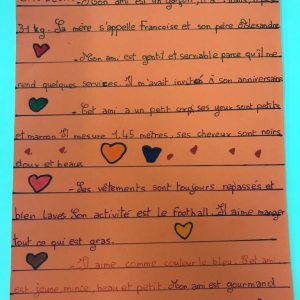 - Mon ami est un garçon, il a
31 kg. La mère s'appelle Francoise et son père Alexandre
- Mon ami est gentil et serviable parce qu'il me
rend quelques services. Il m'avait invité à son anniversaire
- Cet ami a un petit corps ses yeur sont petits
et marron Il mesure 1,45 mètres, ses cheveux sont noirs
doux et beaux
- Ses vêtements sont toujours repassés et
bien lavés Son activité est le football. Il aime manger
tout ce qui est gras.
- Il aime comme couleur le bleu. Cet ami
est jeune, mince, beau et petit. Mon ami est gourmand